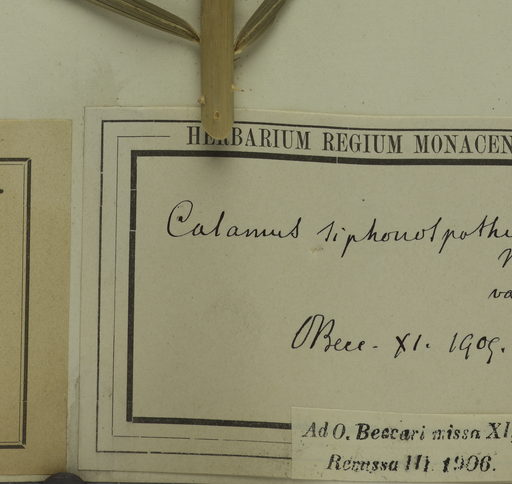 HERBARIUM REGIUM MONACEN
Calamus siphonospathu
va
OBecc. XI. 1905.
Ad O. Beccari missa XI
Remssa III. 1906.